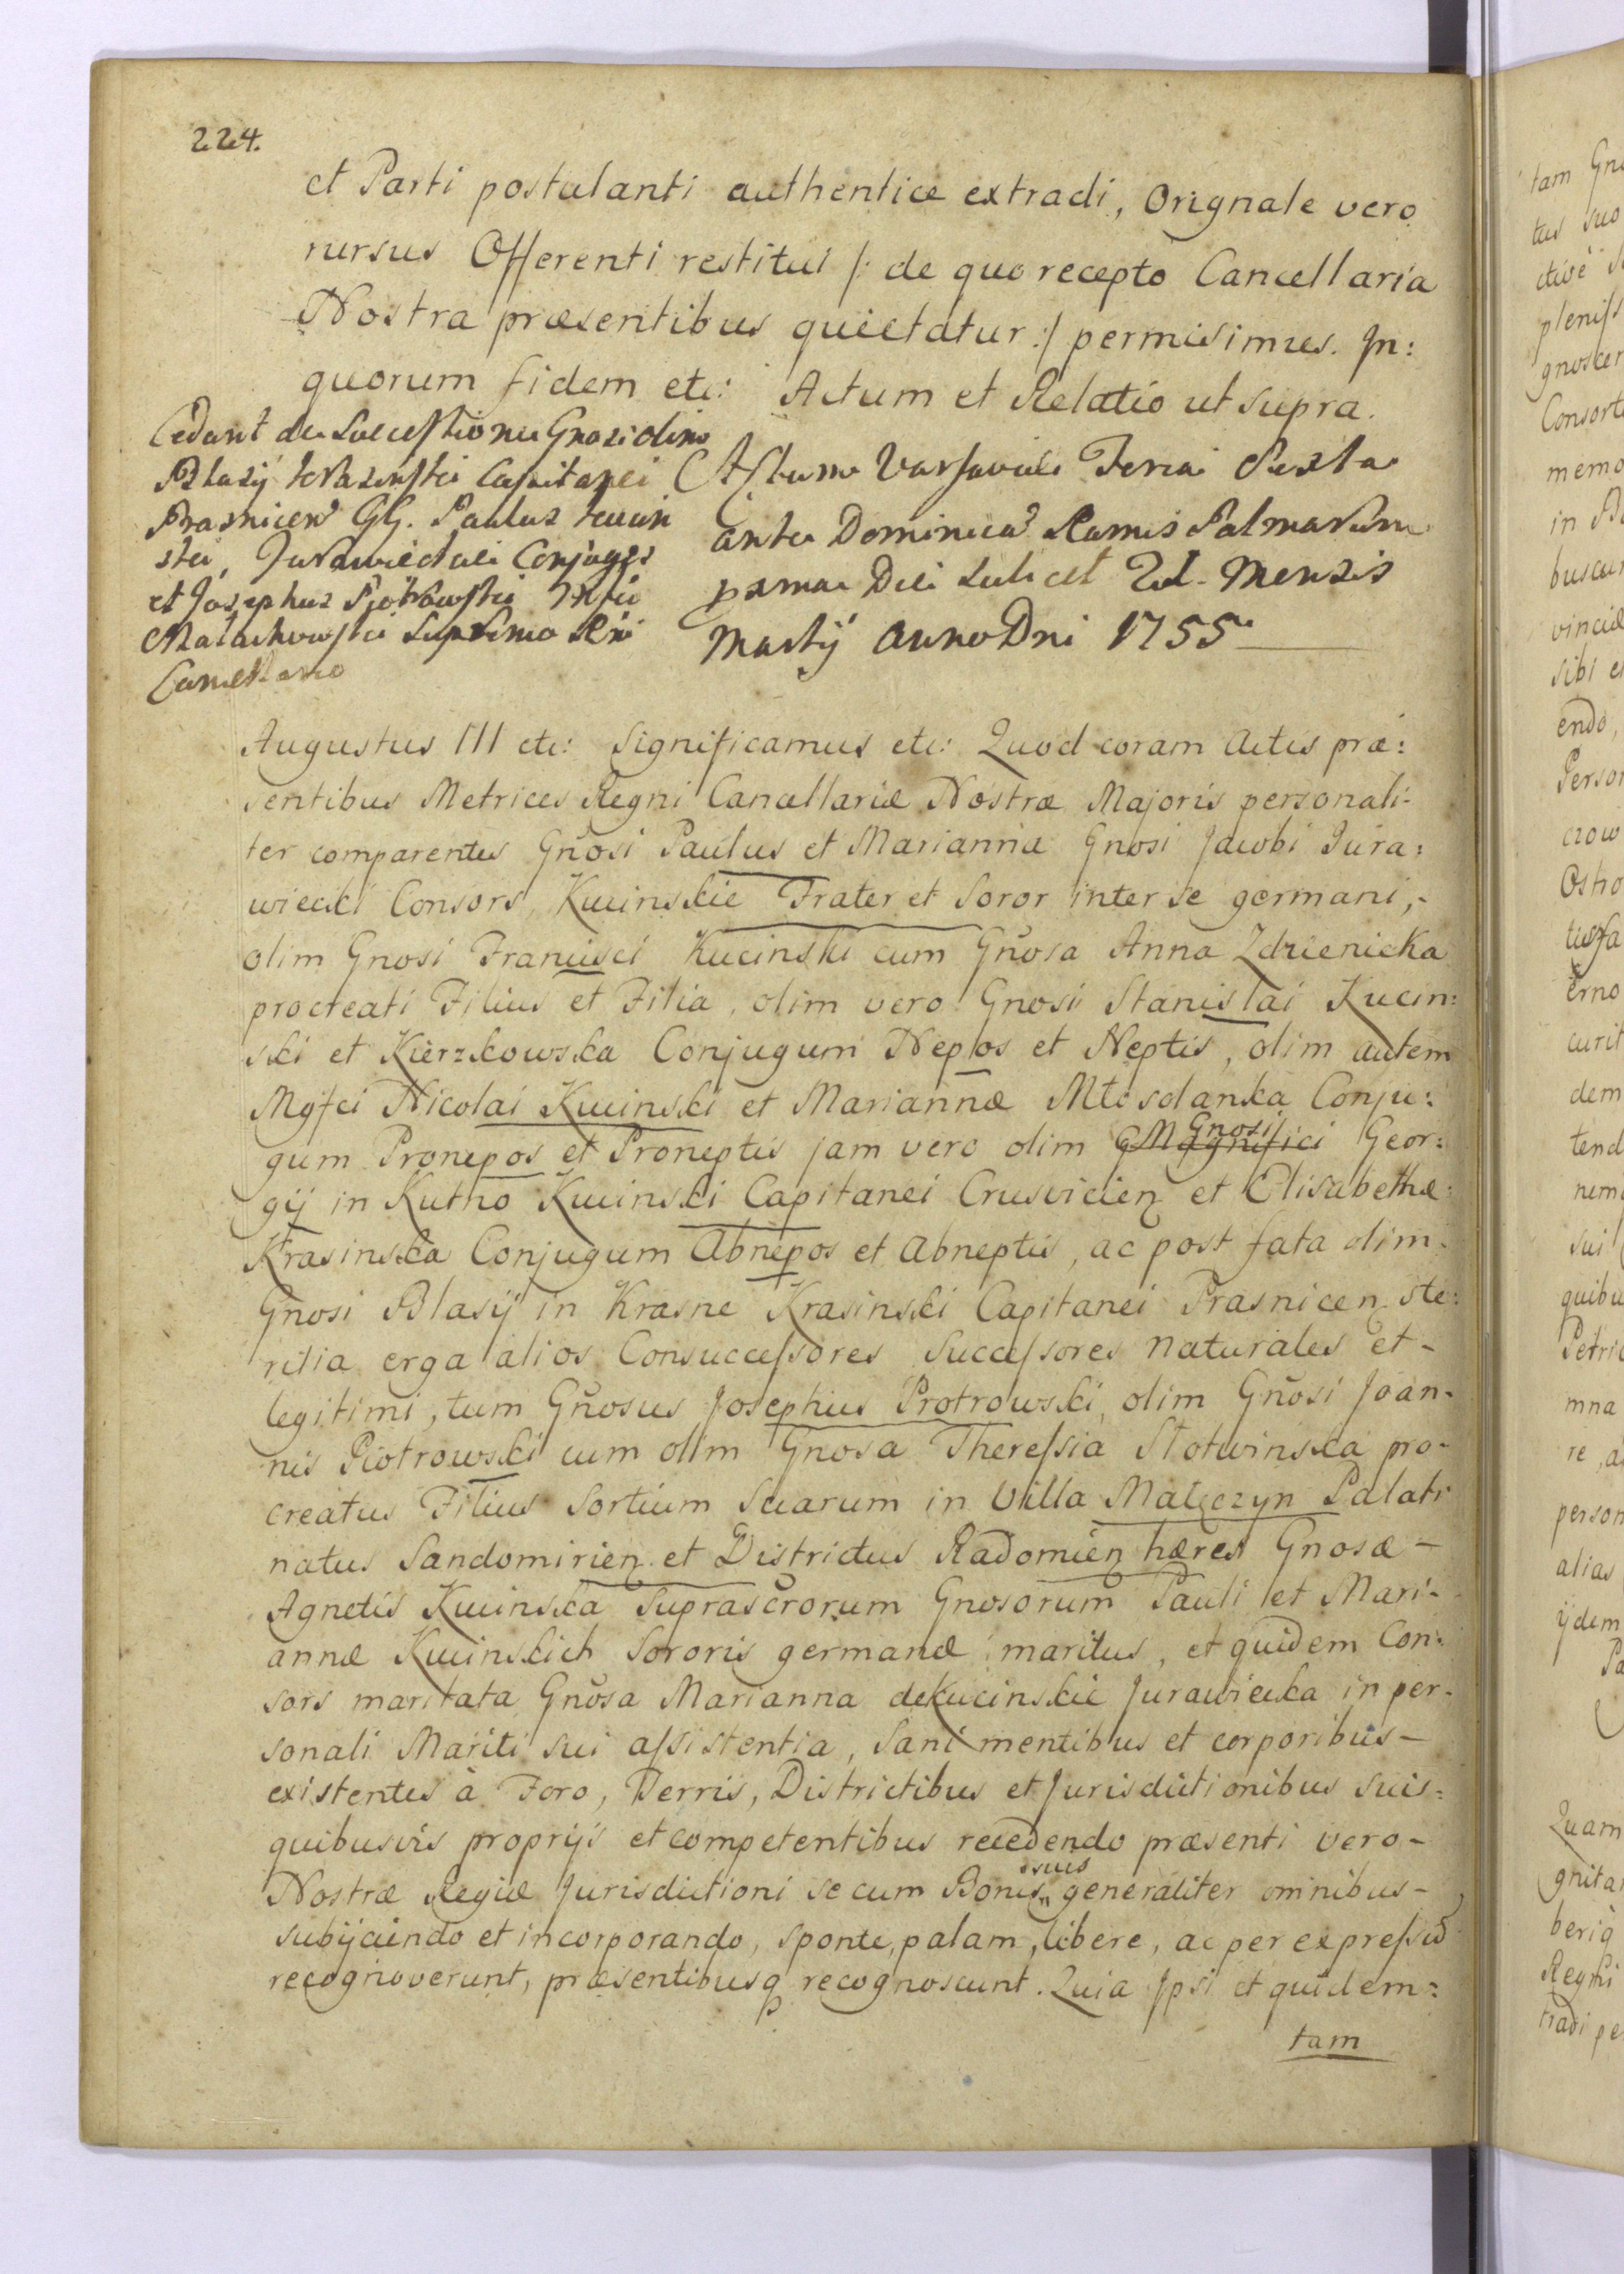 224.
et Parti postulanti authentice extradi, Orignale vero
rursus Offerenti restitui /: de quo recepto Cancellaria
Nostra præsentibus quietatur :/ permisimus. In:
quorum fidem etc: Actum et Relatio ut supra.
Cedunt de Successione Gnosi olim
Blasij Krasinski Capitanei
Prasnicen GG. Paulus Kucin
ski, Jurawieckie Conjuges
et Josephus Piotrowski Mfco
Małachowski Supremo Rni
Cancellario
Actum Varsaviæ Feria Sexta
ante Dominicã Ramis Palmarum
pxma Die scilicet 21 Mensis
Martij Anno Dni 1755
Augustus III etc: Significamus etc: Quod coram Actis præ:
sentibus Metrices Regni Cancellariæ Nostræ Majoris personali-
ter comparentes Gnosi Paulus et Marianna Gnosi Jacobi Jura:
wiecki Consors, Kucinskie Frater et Soror inter se germani,-
olim Gnosi Francisci Kucinski cum Gnosa Anna Zdzienicka
procreati Filius et Filia, olim vero Gnosi Stanislai Kucin:
ski et Kierzkowska Conjugum Nepos et Neptis, olim autem
Mgfci Nicolai Kucinski et Mariannæ Młosdanska Conju:
gum Pronepos et Proneptis jam vero olim Magnifici Gnosi Geor:
gij in Kutno Kucinski Capitanei Crusvicien et Elisabethæ:
Krasinska Conjugum Abnepos et Abneptis, ac post fata olim-
Gnosi Blasij in Krasne Krasinski Capitanei Prasnicen ste:
rilia erga alios Consuccessores Successores naturales et-
legitimi, tum Gnosus Josephus Protrowski, olim Gnosi Joan-
nis Piotrowski cum olim Gnosa Theressia Słotwinska pro-
creatus Filius Sortium Suarum in Villa Małęczyn Palati
natus Sandomirien et Districtus Radomien hæres Gnosæ-
Agnetis Kucinska Suprascrorum Gnosorum Pauli et Mari-
annæ Kucinskich Sororis germanæ maritus, et quidem Con:
sors maritata Gnosa Marianna de Kucinskie Jurawiecka in per-
sonali Mariti sui assistentia, Sani mentibus et corporibus-
existentes à Foro, Terris, Districtibus et Jurisdictionibus suis-
quibusvis proprijs et competentibus recedendo præsenti vero-
Nostræ Regiæ Jurisdictioni se cum Bonis suis generaliter omnibus-
subijciendo et incorporando, sponte, palam, libere, ac per expressũ
recognoverunt, præsentibusq recognoscunt. Quia Ipsi et quidem:
tam